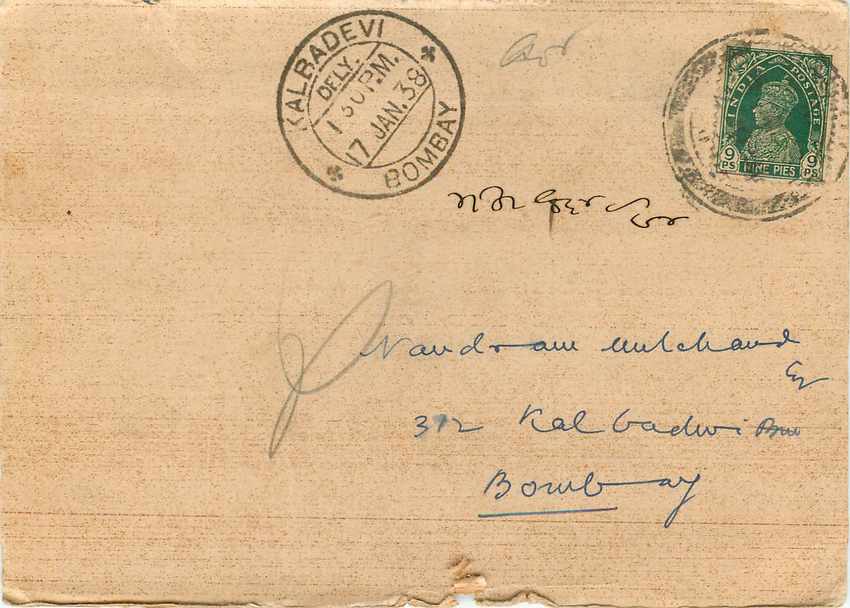 KALBADEVI
DELY.
1 30 P.M.
17 JAN. 38
BOMBAY
INDIA POSTAGE
9 PS
NINE PIES
9 PS
Nandram Mulchand
312 Kalbadevi
Bombay